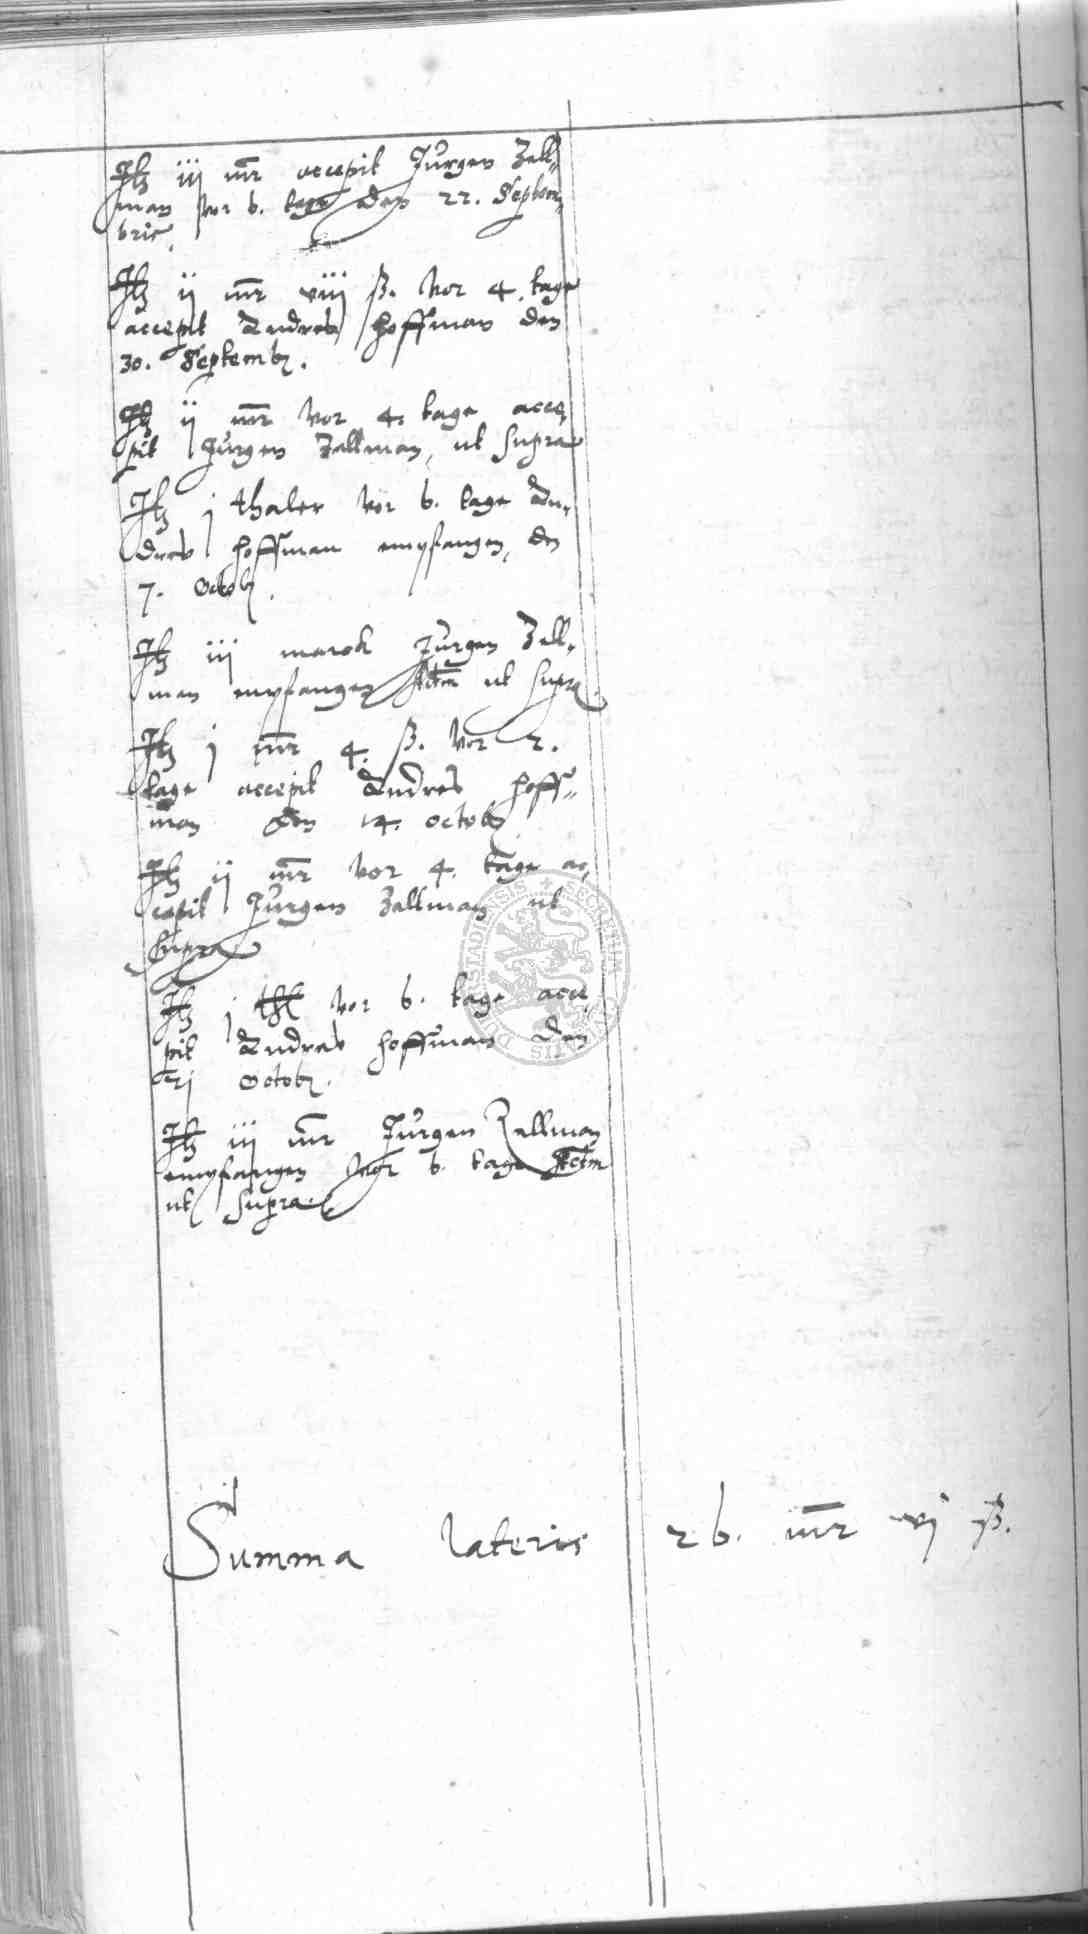 Itz iij mr accepit Jurgen Zell-
man vor 6. tage den 22. Septem-
bris.
Itz ij mr viij ß. vor 4. tage
accepit Andres Hoffman den
30. Septemb.
Itz ij mr vor 4. tage acce-
pit Jurgen Zellman, ut supra
Itz j thaler vor 6. tage An-
dres Hoffman empfangen, den
7. Octob.
Itz iij marck Jurgen Zell-
man empfangen Actm ut supra.
Itz j mr 4. ß. vor 2.
tage accepit Andres Hoff-
man den 14. octob
Itz ij mr vor 4. tage ac-
cepit Jurgen Zellman ut
supra
Itz j thl vor 6. tage acce
pit Andres Hoffman den
21 Octob.
Itz iij mr Jurgen Zellman
empfangen vor 6. tage Actm
ut supra.
Summa lateris 26. mr vj ß.
SECRETUM CIVITATIS DUDERSTADIENSIS